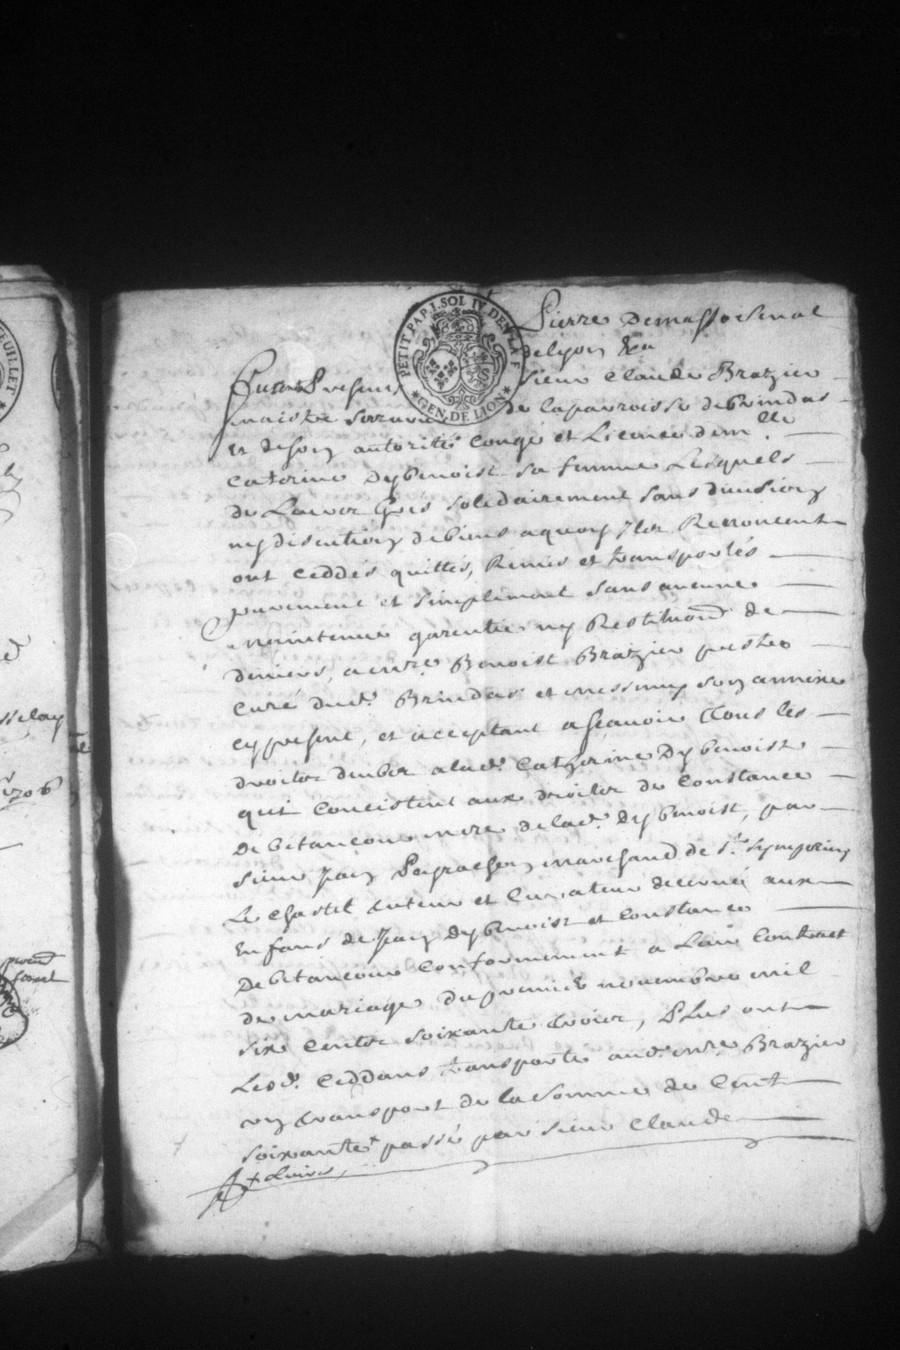 PETIT PAP. I. SOL IV DEN. LA F
GEN. DE LION
Pierre Demasso senal
delyon &a
furent Presens Sieur Claude Brazier
maistre de la parroisse de Brindas
et de son autorité Congé et Licence dem.lle
Caterine Dybenoist sa femme Lesquels
de Leur gres solidairement sans diuision
ny discution de biens a quoy Ilz Renoncent
ont ceddés quittés, Remis et transportés
purement et simplement sans aucune
maintenue garentie ny Restitution de
deniers, a mre. Benoist Brazier prestre
Curé dud. Brindas et messimy son annexe
cy present, et acceptant a sçauoir Tous les
droits deubz a lad. Catherine Dybenoist
qui Concistent aux droitz de Constance
De Betancour mere de lad. Dybenoist, par
Sieur Jean marchand de St. Symphorien
Le Chastel tuteur et Curateur decerné aux
Enfans de Jean Dybenoist et Constance
De betancour Conformement a Leur Contract
de mariage du premier nouembre mil
six Centz soixante trois, Plus ont
Lesd. Ceddans transporté aud. mre. Brazier
vn transport de la somme de Cent
soixante + passé par sieur Claude
+ Liures
FEUILLET
1706